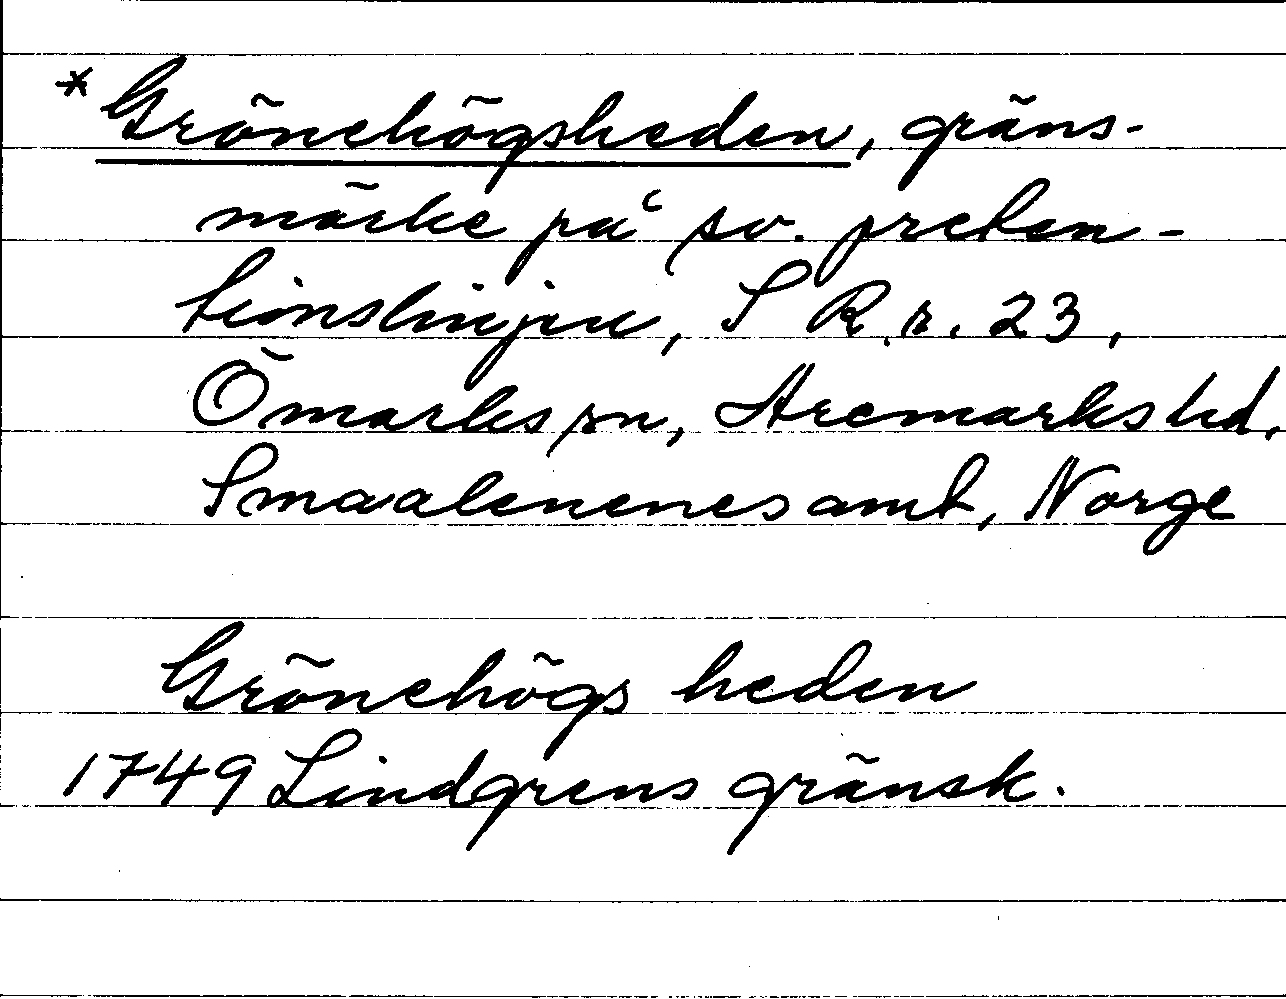 *Grönehögsheden, gräns-
märke på sv. preten-
tionslinjen, S R.r. 23,
Ömarks sn, Aremarks hd,
Smaalenenes amt, Norge
Grönehögs heden
1749 Lindgrens gränsk.